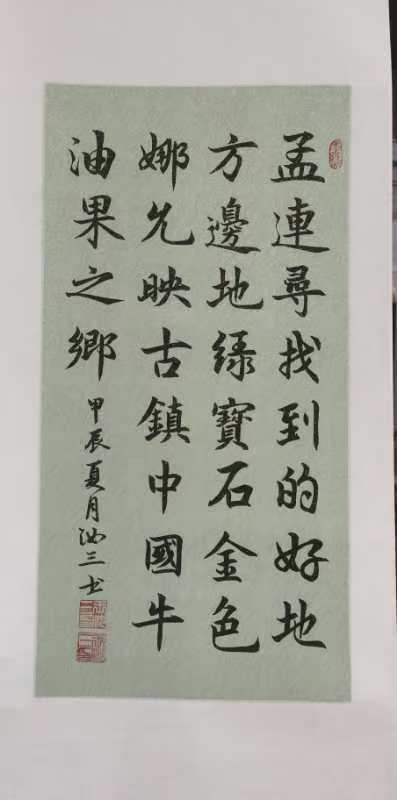 孟連尋找到的好地
方邊地綠寶石金色
娜允映古鎮中國牛
油果之鄉
甲辰夏月汝三书